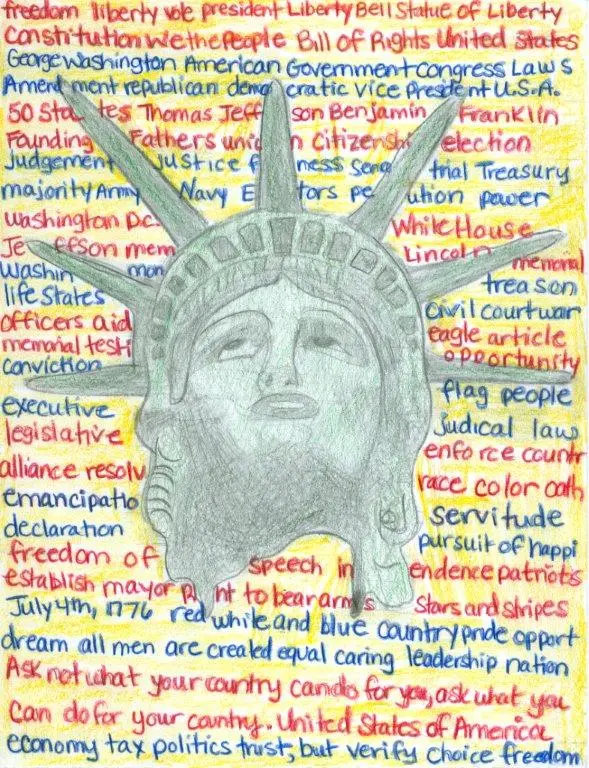 freedom liberty vote president Liberty Bell Statue of Liberty
Constitution We the People Bill of Rights United States
George Washington American Government Congress Laws
Amendment republican democratic Vice President U.S.A.
50 Sta tes Thomas Jeff son Benjamin Franklin
Founding Fathers union Citizenshi election
Judgement justice f ness Sena trial Treasury
majority Army Navy E tors pe ution power
Washington D.C. White House
Je ffson mem Lincoln memorial
Washin mon treason
life States civil court war
officers aid eagle article
memorial testi opportunity
conviction flag people
executive judical law
legislative enforce countr
alliance resolv race color oath
emancipatio servitude
declaration pursuit of happi
freedom of speech in endence patriots
establish mayor Right to bear arms Stars and stripes
July 4th, 1776 red white and blue country pride opport
dream all men are created equal caring leadership nation
Ask not what your country can do for you, ask what you
can do for your country. United States of America
economy tax politics trust, but verify choice freedom